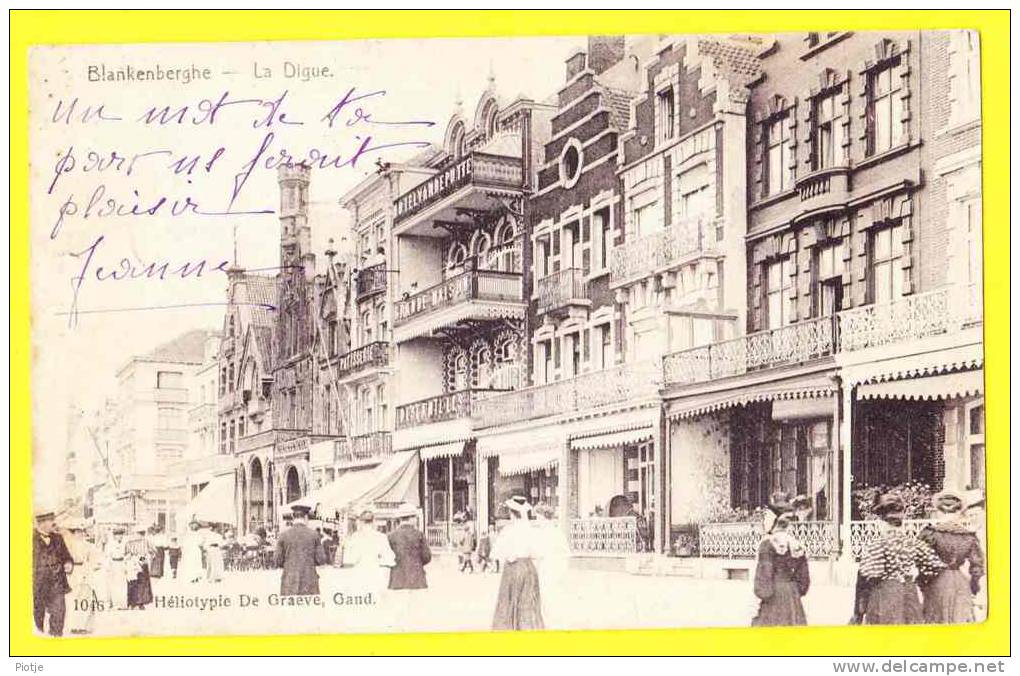 Blankenberghe — La Digue.
Un mot de toi
pars us ferait
plaisir
Jeanne
1046
Héliotypie De Graeve, Gand.
Piotje
www.delcampe.net